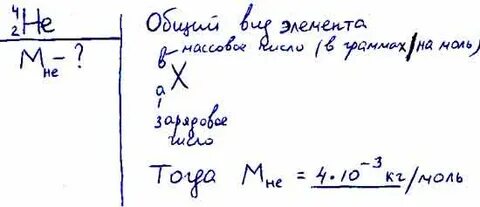 ⁴₂He
Mне - ?
Общий вид элемента
массовое число (в граммах/на моль)
в
X
а
зарядовое
число
Тогда Mне = 4·10⁻³ кг/моль